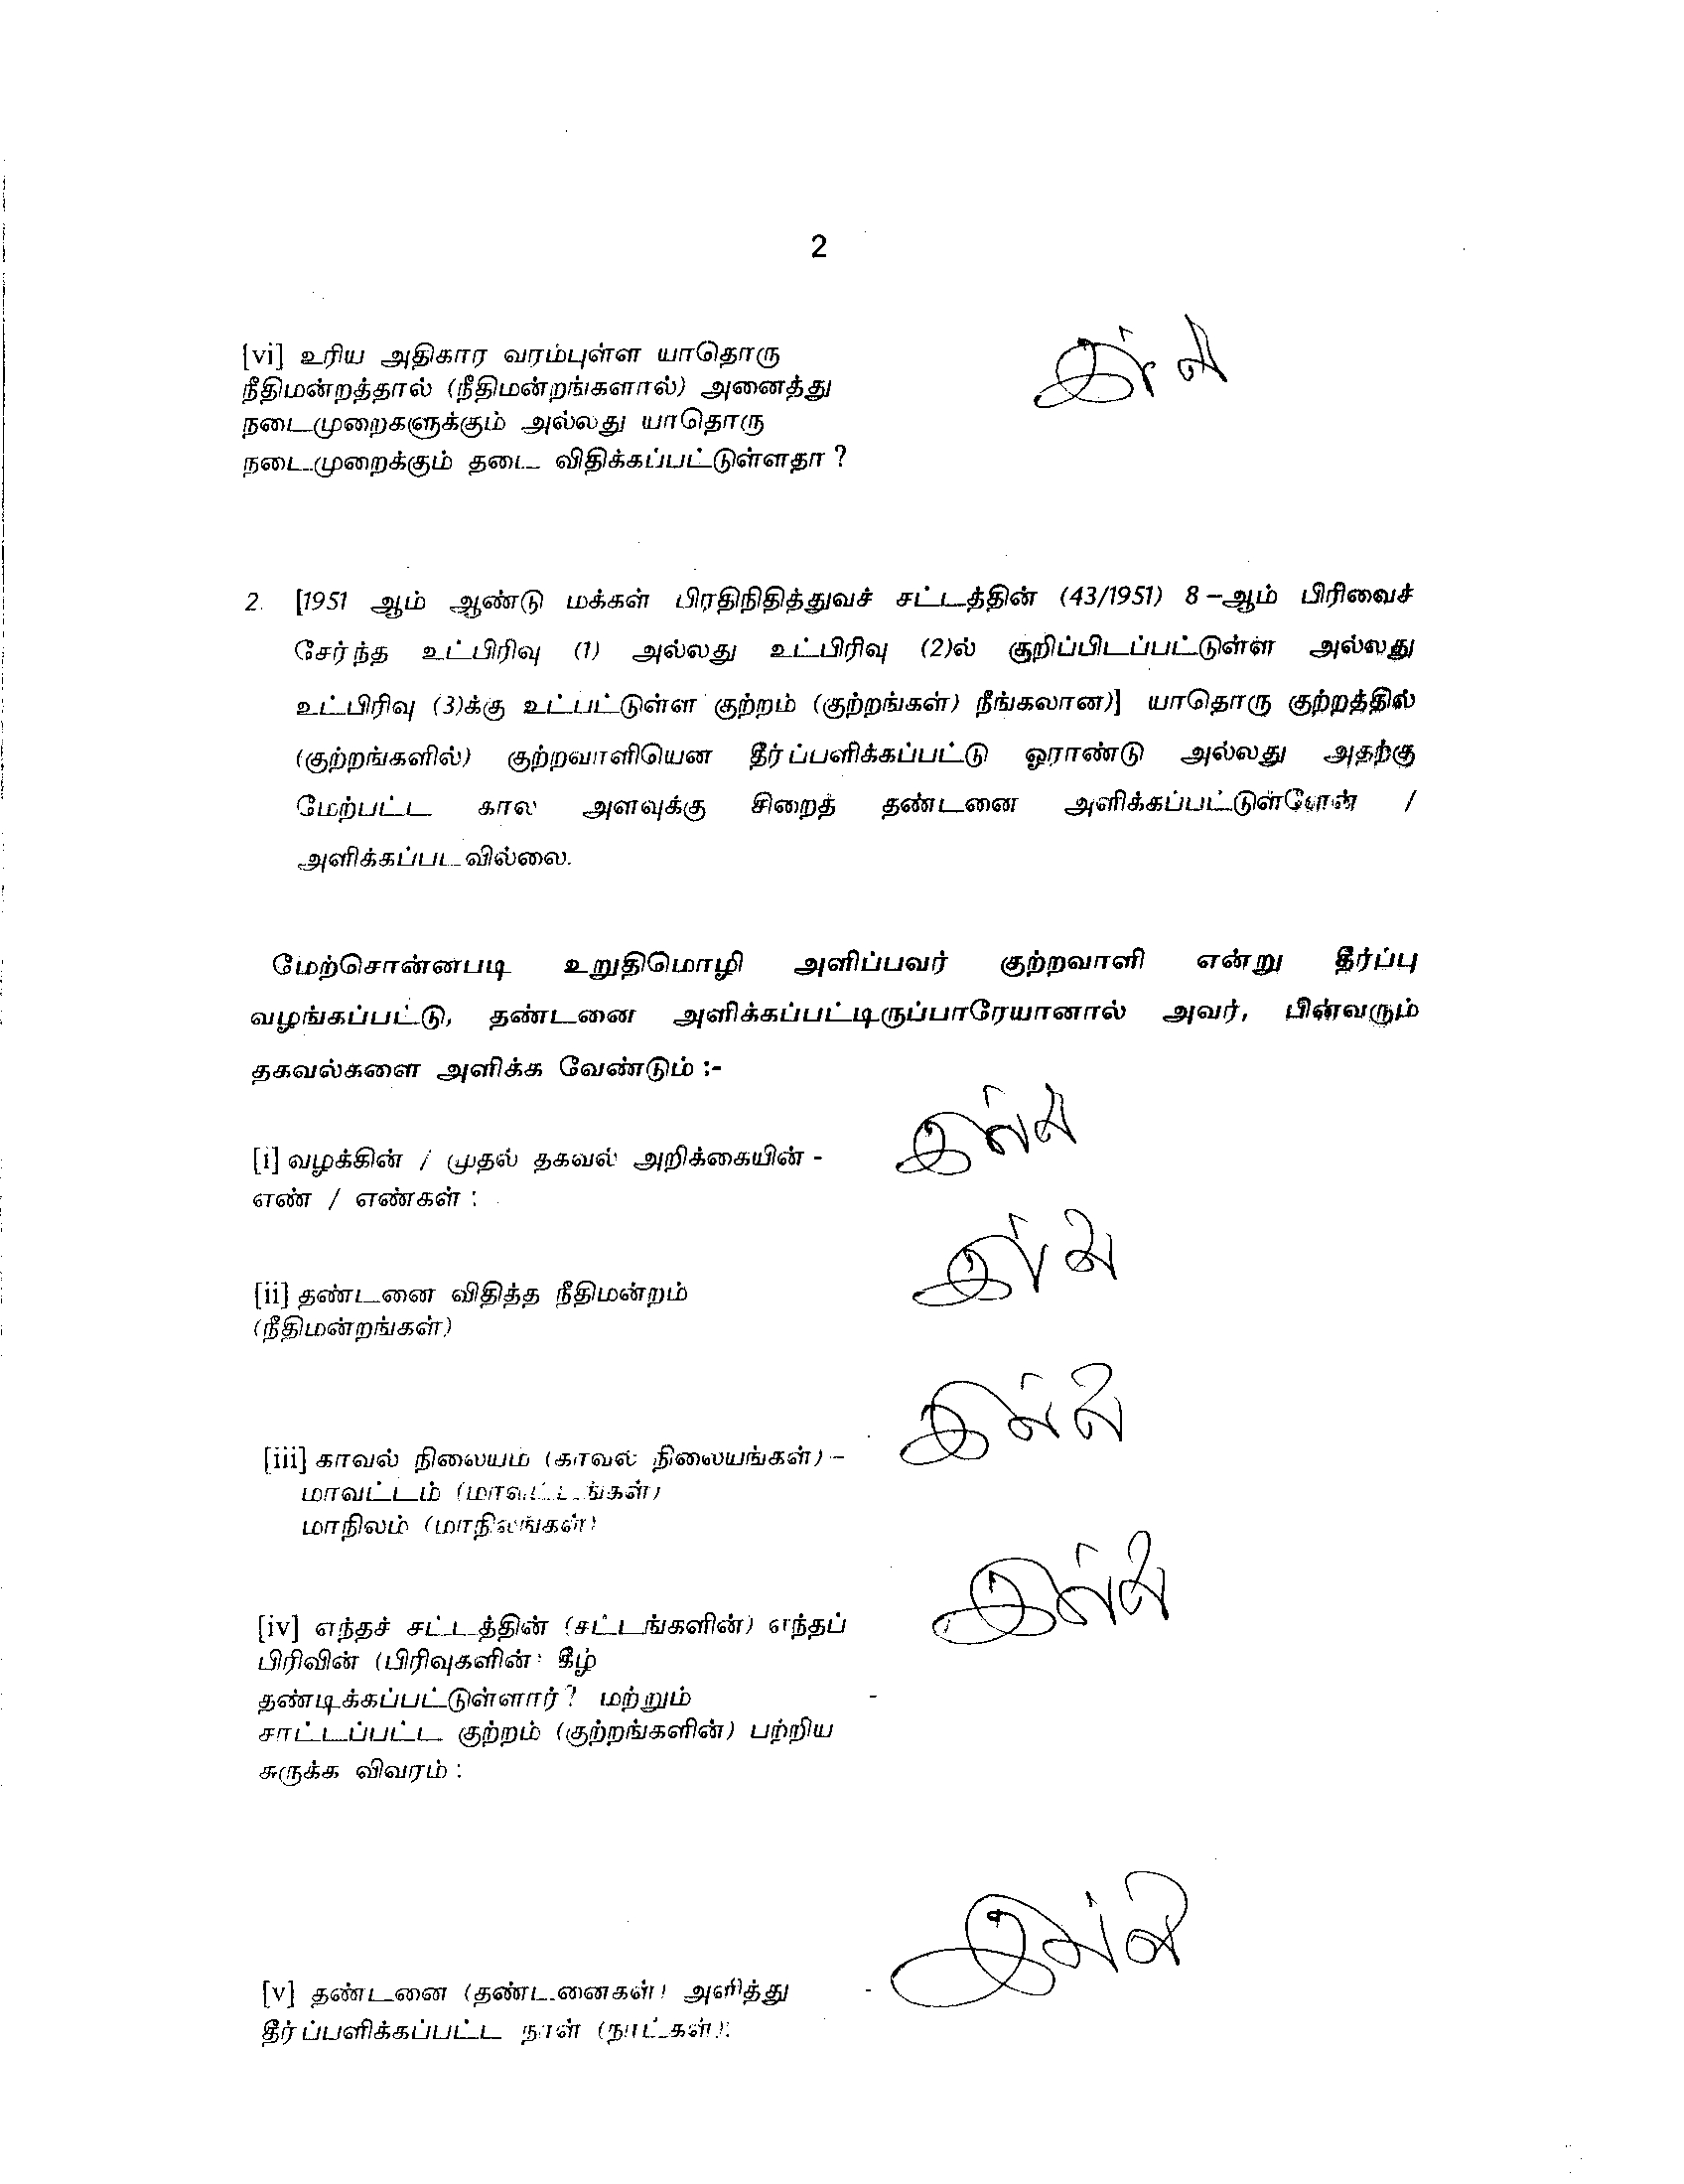 2
[vi] உரிய அதிகார வரம்புள்ள யாதொரு
நீதிமன்றத்தால் (நீதிமன்றங்களால்) அனைத்து
நடைமுறைகளுக்கும் அல்லது யாதொரு
நடைமுறைக்கும் தடை விதிக்கப்பட்டுள்ளதா ?
2. [1951 ஆம் ஆண்டு மக்கள் பிரதிநிதித்துவச் சட்டத்தின் (43/1951) 8–ஆம் பிரிவைச்
சேர்ந்த உட்பிரிவு (1) அல்லது உட்பிரிவு (2)ல் குறிப்பிடப்பட்டுள்ள அல்லது
உட்பிரிவு (3)க்கு உட்பட்டுள்ள குற்றம் (குற்றங்கள்) நீங்கலான)] யாதொரு குற்றத்தில்
(குற்றங்களில்) குற்றவாளியென தீர்ப்பளிக்கப்பட்டு ஓராண்டு அல்லது அதற்கு
மேற்பட்ட கால அளவுக்கு சிறைத் தண்டனை அளிக்கப்பட்டுள்ளேன் /
அளிக்கப்படவில்லை.
மேற்சொன்னபடி உறுதிமொழி அளிப்பவர் குற்றவாளி என்று தீர்ப்பு
வழங்கப்பட்டு, தண்டனை அளிக்கப்பட்டிருப்பாரேயானால் அவர், பின்வரும்
தகவல்களை அளிக்க வேண்டும் :-
[i] வழக்கின் / முதல் தகவல் அறிக்கையின் -
எண் / எண்கள் :
[ii] தண்டனை விதித்த நீதிமன்றம்
(நீதிமன்றங்கள்)
[iii] காவல் நிலையம் (காவல் நிலையங்கள்) –
மாவட்டம் (மாவட்டங்கள்)
மாநிலம் (மாநிலங்கள்)
[iv] எந்தச் சட்டத்தின் (சட்டங்களின்) எந்தப்
பிரிவின் (பிரிவுகளின்) கீழ்
தண்டிக்கப்பட்டுள்ளார் ? மற்றும் -
சாட்டப்பட்ட குற்றம் (குற்றங்களின்) பற்றிய
சுருக்க விவரம் :
[v] தண்டனை (தண்டனைகள்) அளித்து -
தீர்ப்பளிக்கப்பட்ட நாள் (நாட்கள்):